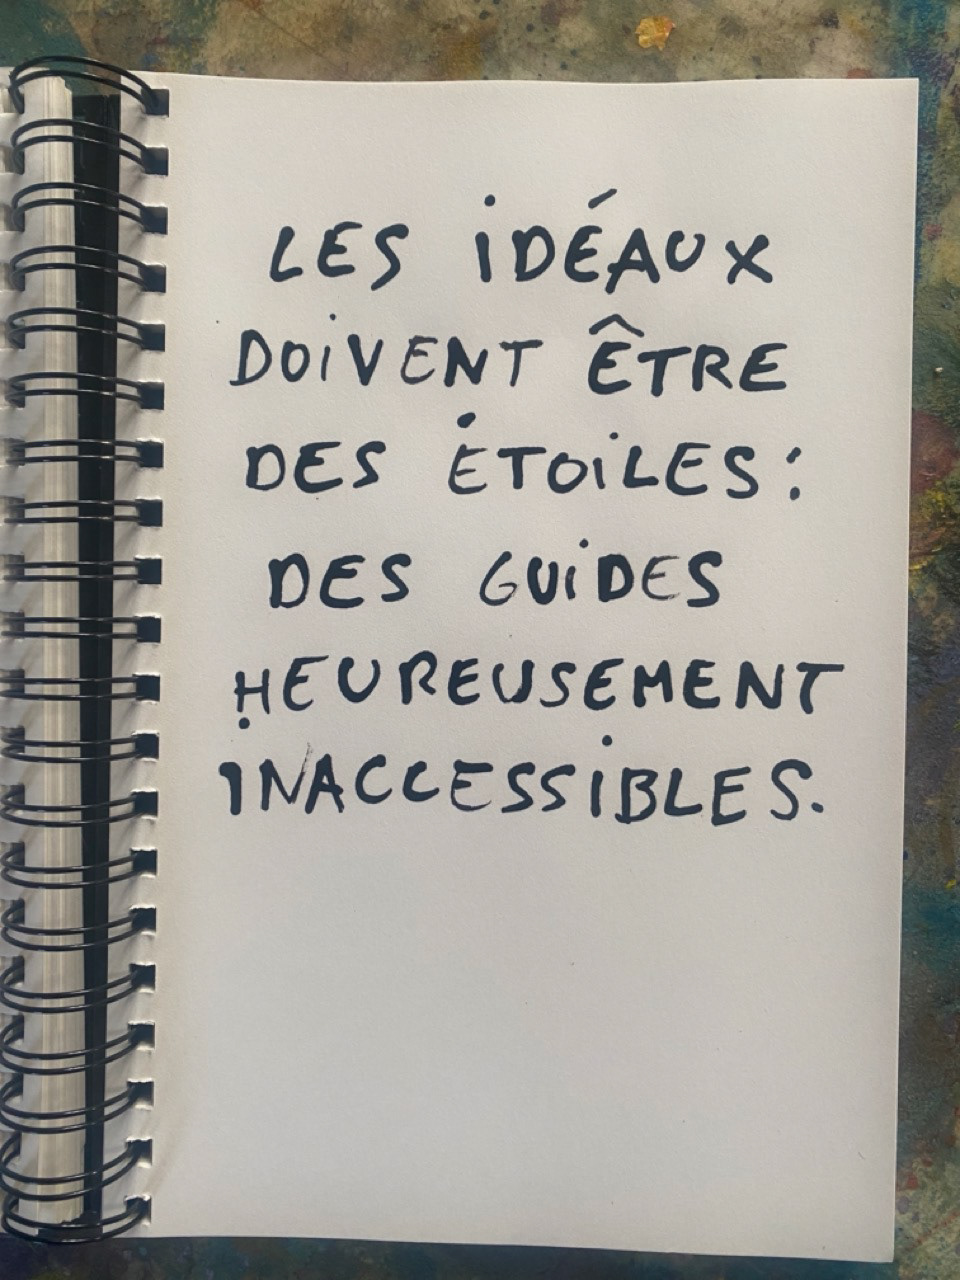 LES iDÉAUX
DOiVENT ÊTRE
DES ÉTOiLES :
DES GUiDES
HEUREUSEMENT
INACCESSiBLES.